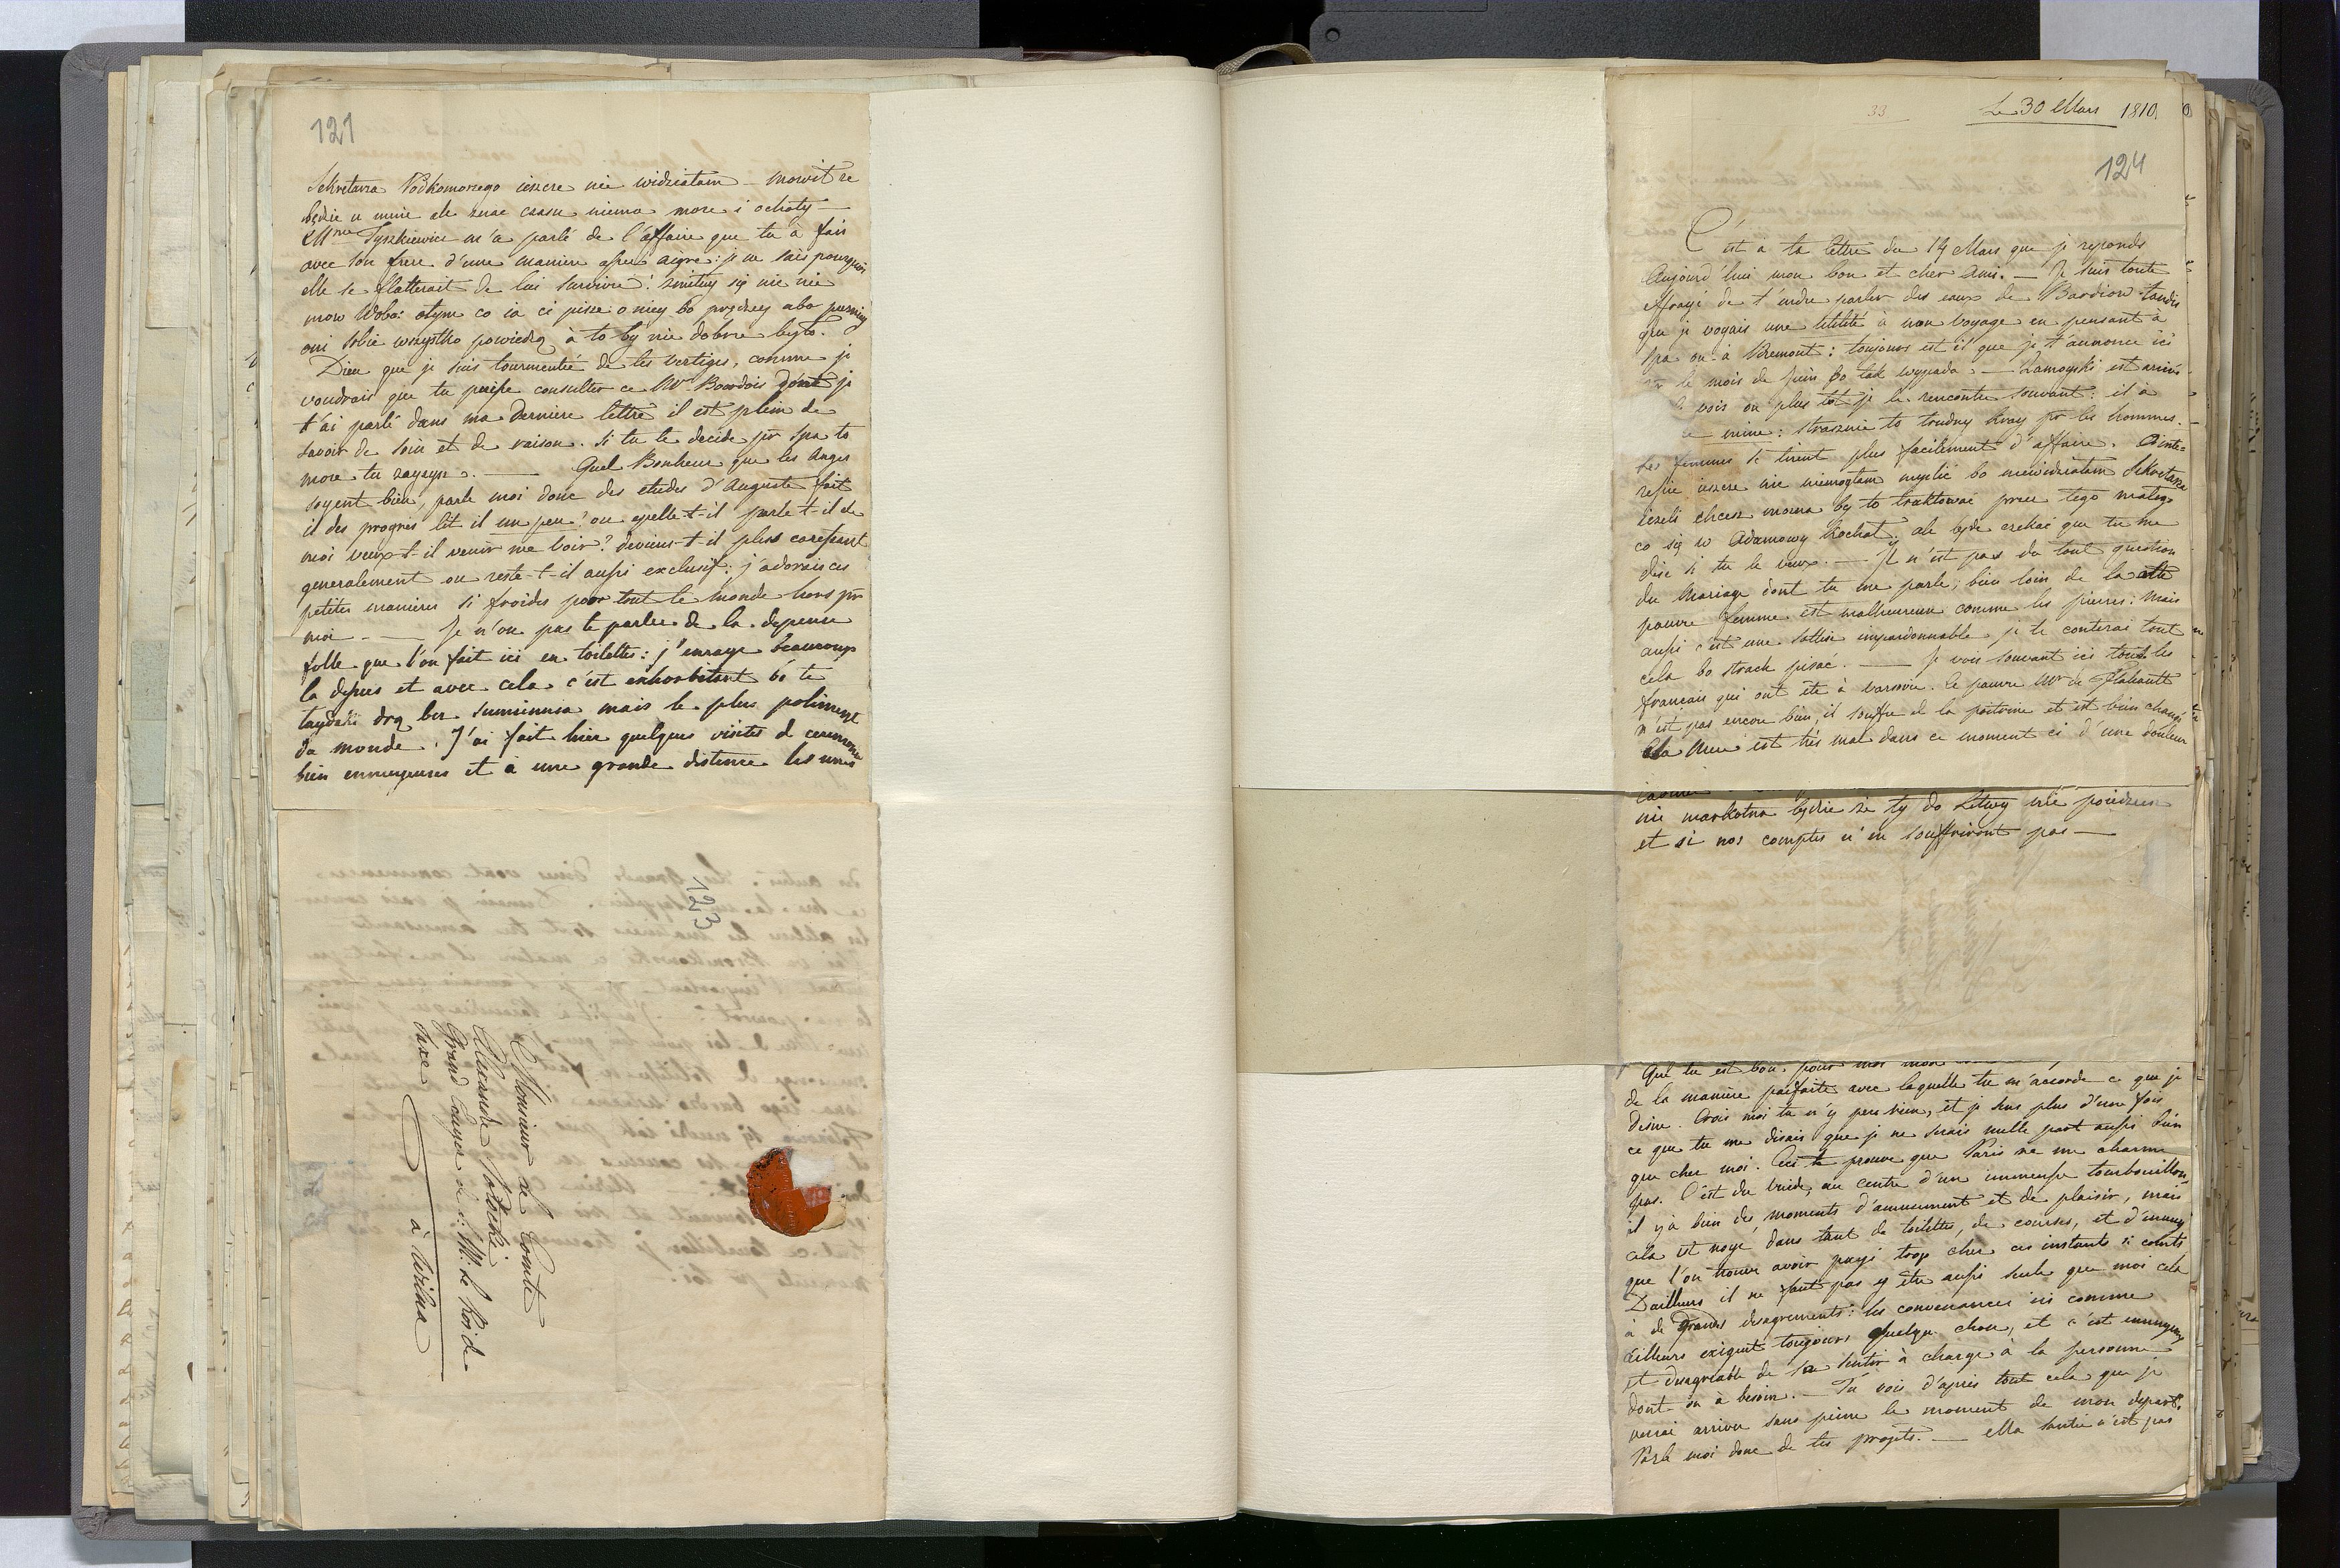 121
Sekretarza Podkomorzego ieszcze nie widziałam — mowił że
będzie u mnie ale znac czasu niema może i ochoty —
Mme Tyszkiewicz m'a parlé de l'affaire que tu à fair
avec son frere d'une maniere assez aigre: je ne sais pourquoi
elle se flatterait de lui survivre: zmiłuy się nie nie
mow Woba: otym co ia ci pisze o niey bo prędzey abo pozniey
oni sobie wszystko powiedzą à to by nie dobrze było.
Dieu que je suis tourmentée de tes vertiges, comme je
voudrais que tu puisse consulter ce Mr Bourdois dont je
t'ai parlé dans ma derniere lettre il est plein de
savoir de soin et de raison. Si tu te decide pr Spa to
może tu zayzysz. — Quel Bonheur que les Anges
soyent bien, parle moi donc des etudes d'Auguste fait
il des progres lit il un peu? ou epelle-t-il parle-t-il de
moi veux-t-il venir me voir? deviens-t-il plus caressant
generalement ou reste-t-il aussi exclusif: j'adorais ces
petites manieres si froides pour tout le monde hors pr
moi — Je n'ose pas te parler de la depense
folle que l'on fait ici en toilettes: j'enraye beaucoup
la depens et avec cela c'est exhorbitant bo te
łaydaki drą bez sumienia mais le plus poliment
du monde. J'ai fait hier quelques visites de ceremonie
bien ennuyeuses et à une grande distence les unes
123
Monsieur le Comte
Alexandre Potocki
Grand Ecuyer de S: M: le Roi de
Saxe
à Wilna
33
Le 30 Mars 1810
124
C'est à ta lettre du 14 Mars que je reponds
Aujourd'hui mon bon et cher Ami. — Je suis toute
effrayé de t'endre parler des eaux de Bardiow tandis
que je voyais une utilité à mon voyage en pensant à
Spa ou à Biremont: toujours est il que je t'annonce ici
le mois de Juin bo tak wypada. — Zamoyski est arrivé
vois ou plus tôt je le rencontre souvant: il à
mine: strasznie to trudny kray pr les hommes.
les femmes se tirent plus facilement d'affaire. Ointe=
resie ieszcze nie niemogłam myslić bo niewidziałam Sekretarza
ieżeli chcesz można by to traktować przez tego małego
co się w Adamowy kochał; ale będe czekać que tu me
dise si tu le veux. — Il n'est pas du tout question
du Mariage dont tu me parle, bien loin de la cette
pauvre femme est malheureuse comme les pierres: Mais
aussi c'est une sottise impardonnable je te conterai tout
cela bo strach pisać. — Je vois souvant ici tous les
francais qui ont été à Varsovie. Le pauvre Mr de Flahault
n'est pas encore bien, il souffre de la poitrine et est bien changé
Sa Mere est très mal dans ce moment ci d'une douleur
nie markotna będzie że ty do Litwy nie poiedziesz
et si nos comptes n'en souffriront pas —
Que tu est bon pour moi mon
de la maniere parfaite avec laquelle tu m'accorde ce que je
desire. Crois moi tu n'y peu rien, et je sens plus d'une fois
ce que tu me disais que je ne serais nulle part aussi bien
que chez moi. Ceci te prouve que Paris ne me charme
pas. C'est du vuide, au centre d'un immense tourbouillon,
il y à bien des moments d'amusement et de plaisir, mais
cela est noyé dans tant de toilettes, de courses, et d'ennuy
que l'on trouve avoir payé trop cher ces instants si courts
Dailleurs il ne faut pas y être aussi seule que moi cela
à de grands desagrements: les convenances ici comme
ailleurs exigent toujours quelque chose, et c'est ennuyeux
et desagreable de se sentir à charge à la personne
dont on à besoin. — Tu vois d'après tout cela que je
verrai arriver sans peine le moment de mon depart.
Parle moi donc de tes projets. — Ma santé n'est pas